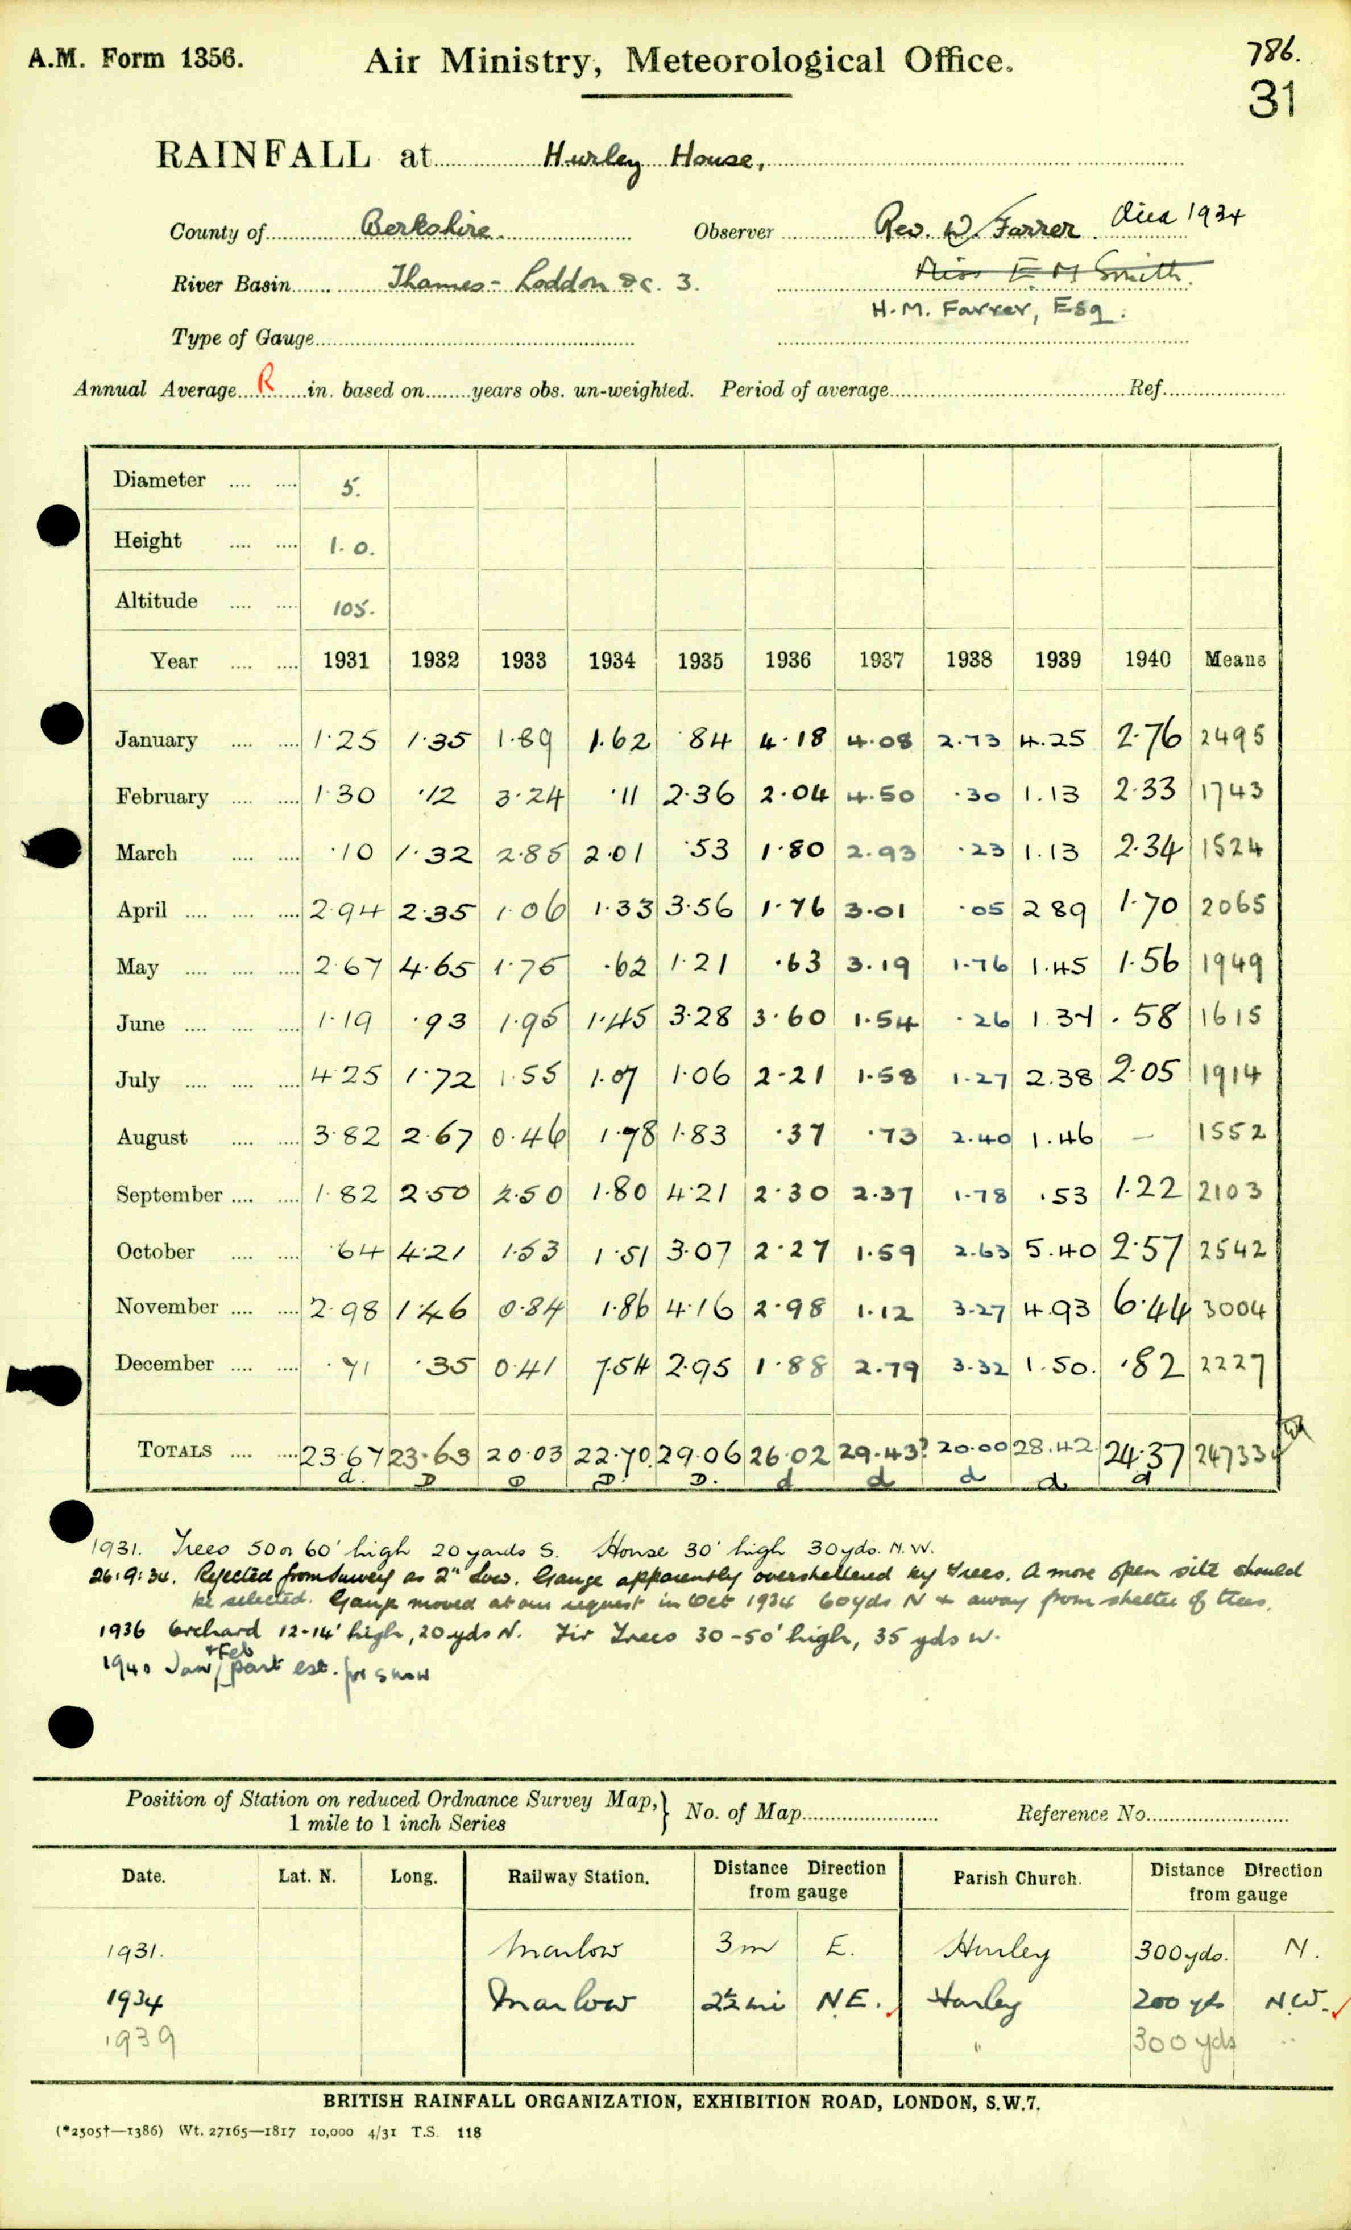 A.M. Form 1356. Air Ministry, Meteorological Office. 786.
31
RAINFALL at Hurley House,
County of Berkshire Observer Rev. W. Farrer Died 1934
River Basin Thames - Loddon &c. 3. Miss E M Smith.
H. M. Farrer, Esq.
Type of Gauge
Annual Average R in. based on years obs. un-weighted. Period of average Ref.
Diameter 5.
Height 1.0.
Altitude 105.
Year 1931 1932 1933 1934 1935 1936 1937 1938 1939 1940 Means
January 1.25 1.35 1.89 1.62 .84 4.18 4.08 2.73 4.25 2.76 2495
February 1.30 .12 3.24 .11 2.36 2.04 4.50 .30 1.13 2.33 1743
March .10 1.32 2.85 2.01 .53 1.80 2.93 .23 1.13 2.34 1524
April 2.94 2.35 1.06 1.33 3.56 1.76 3.01 .05 2 89 1.70 2065
May 2.67 4.65 1.75 .62 1.21 .63 3.19 1.76 1.45 1.56 1949
June 1.19 .93 1.95 1.45 3.28 3.60 1.54 .26 1.34 .58 1615
July 4.25 1.72 1.55 1.07 1.06 2.21 1.58 1.27 2.38 2.05 1914
August 3.82 2.67 0.46 1.78 1.83 .37 .73 2.40 1.46 — 1552
September 1.82 2.50 2.50 1.80 4.21 2.30 2.37 1.78 .53 1.22 2103
October .64 4.21 1.53 1.51 3.07 2.27 1.59 2.63 5.40 2.57 2542
November 2.98 1.46 0.84 1.86 4.16 2.98 1.12 3.27 4.93 6.44 3004
December .71 .35 0.41 7.54 2.95 1.88 2.79 3.32 1.50. .82 2227
TOTALS 23.67 23.63 20.03 22.70. 29.06 26.02 29.43? 20.00 28.42 24.37 24733
d. D D D. D. d d d d d
1931. Trees 50 or 60' high 20 yards S. House 30' high 30 yds. N.W.
26.9.34. Rejected from Survey as 2" low. Gauge apparently oversheltered by trees. A more open site should
be selected. Gauge moved at our request in Oct 1934 60yds N & away from shelter of trees.
1936 Orchard 12-14' high, 20 yds N. Fir Trees 30-50' high, 35 yds W.
1940 Jan + Feb part est. for snow
Position of Station on reduced Ordnance Survey Map, } No. of Map Reference No.
1 mile to 1 inch Series
Date. Lat. N. Long. Railway Station. Distance Direction from gauge Parish Church. Distance Direction from gauge
1931. Marlow 3 m E. Hurley 300 yds. N.
1934 Marlow 2½ mi N.E. Hurley 200 yds N.W.
1939 " 300 yds "
BRITISH RAINFALL ORGANIZATION, EXHIBITION ROAD, LONDON, S.W.7.
(*2505†—1386) Wt. 27165—1817 10,000 4/31 T.S. 118